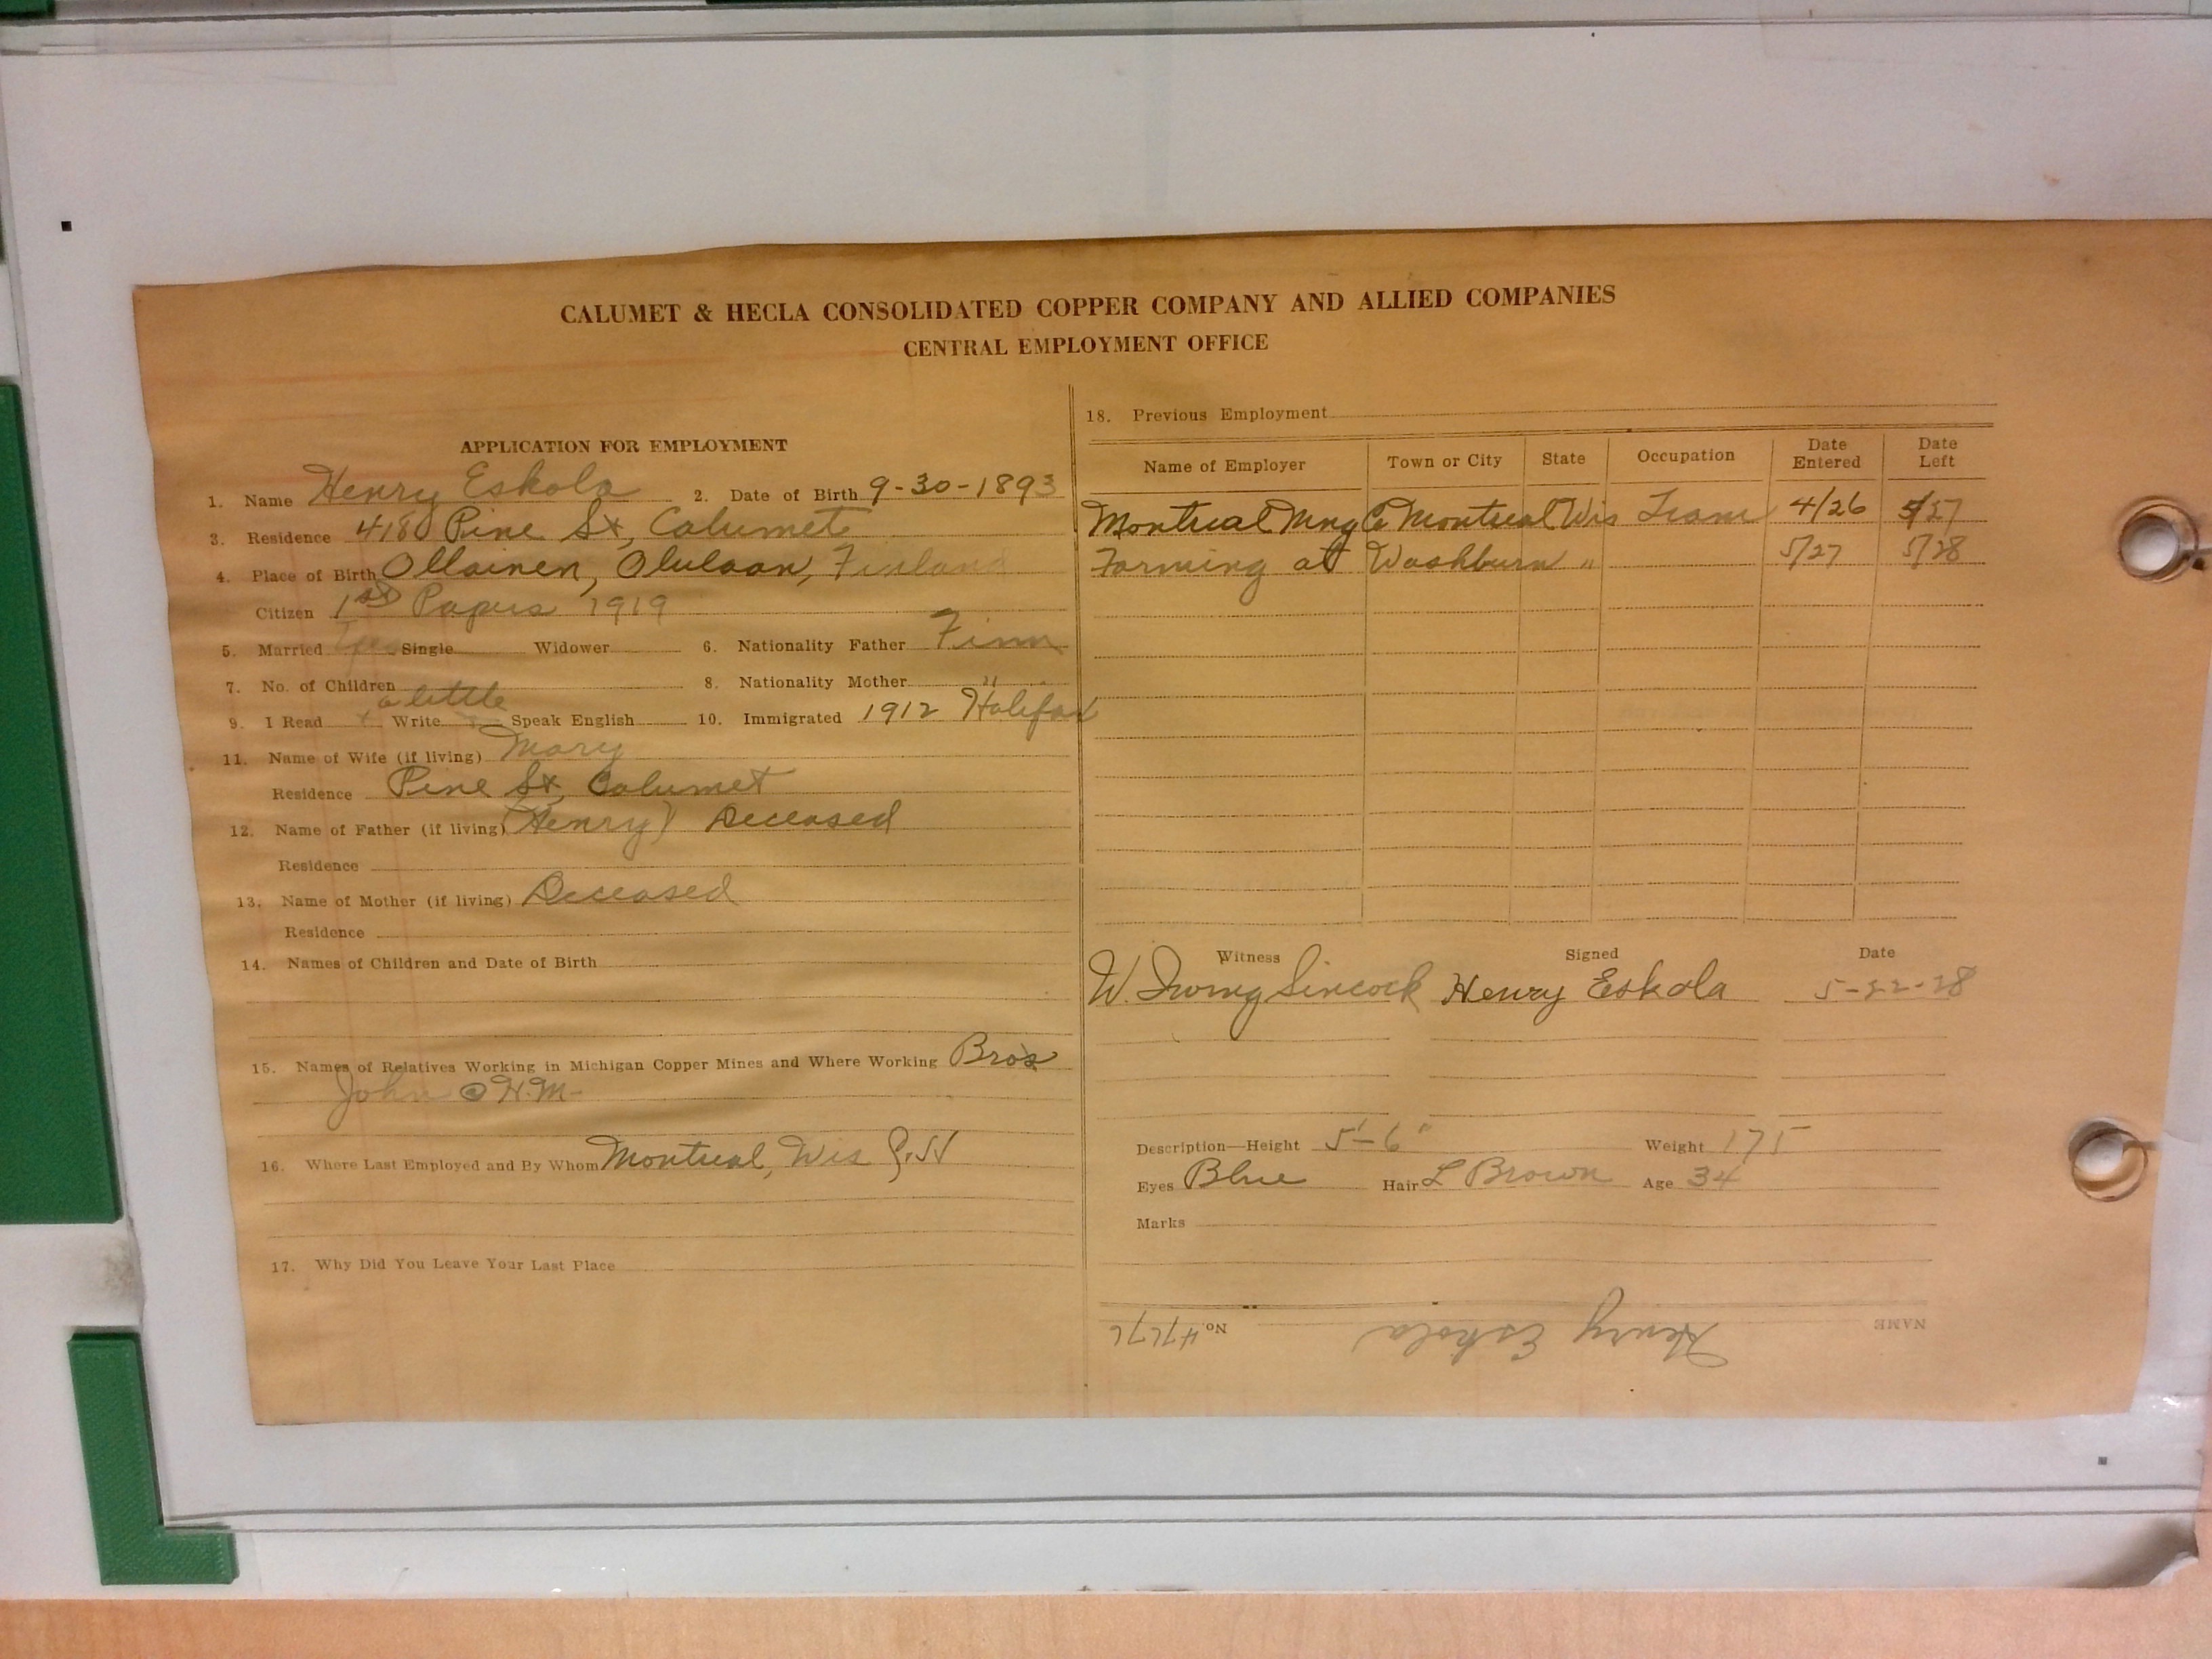 CALUMET & HECLA CONSOLIDATED COPPER COMPANY AND ALLIED COMPANIES
CENTRAL EMPLOYMENT OFFICE
APPLICATION FOR EMPLOYMENT
1. Name Henry Eskola 2. Date of Birth 9-30-1893
3. Residence 4180 Pine St, Calumet
4. Place of Birth Ollainen, Olulaan, Finland
Citizen 1st Papers 1919
5. Married Yes Single Widower 6. Nationality Father Finn
7. No. of Children 8. Nationality Mother "
a little
9. I Read Write Speak English 10. Immigrated 1912 Halifax
11. Name of Wife (if living) Mary
Residence Pine St, Calumet
12. Name of Father (if living) (Henry) Deceased
Residence
13. Name of Mother (if living) Deceased
Residence
14. Names of Children and Date of Birth
15. Names of Relatives Working in Michigan Copper Mines and Where Working Bros
John C H.M-
16. Where Last Employed and By Whom Montreal, Wis
17. Why Did You Leave Your Last Place
18. Previous Employment
Name of Employer Town or City State Occupation Date Entered Date Left
Montreal Mng Co Montreal Wis Tram 4/26 5/27
Farming at Washburn " 5/27 5/28
Witness Signed Date
W. Irving Sincock Henry Eskola 5-22-28
Description—Height 5'-6" Weight 175
Eyes Blue Hair L Brown Age 34
Marks
NAME Henry Eskola No.